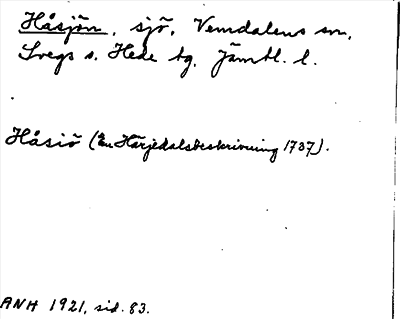 Håsjön, sjö, Vemdalens sn,
Svegs o. Hede tg. Jämtl. l.
Håsiö (En Härjedalsbeskrivning 1737).
ANH 1921, sid. 83.